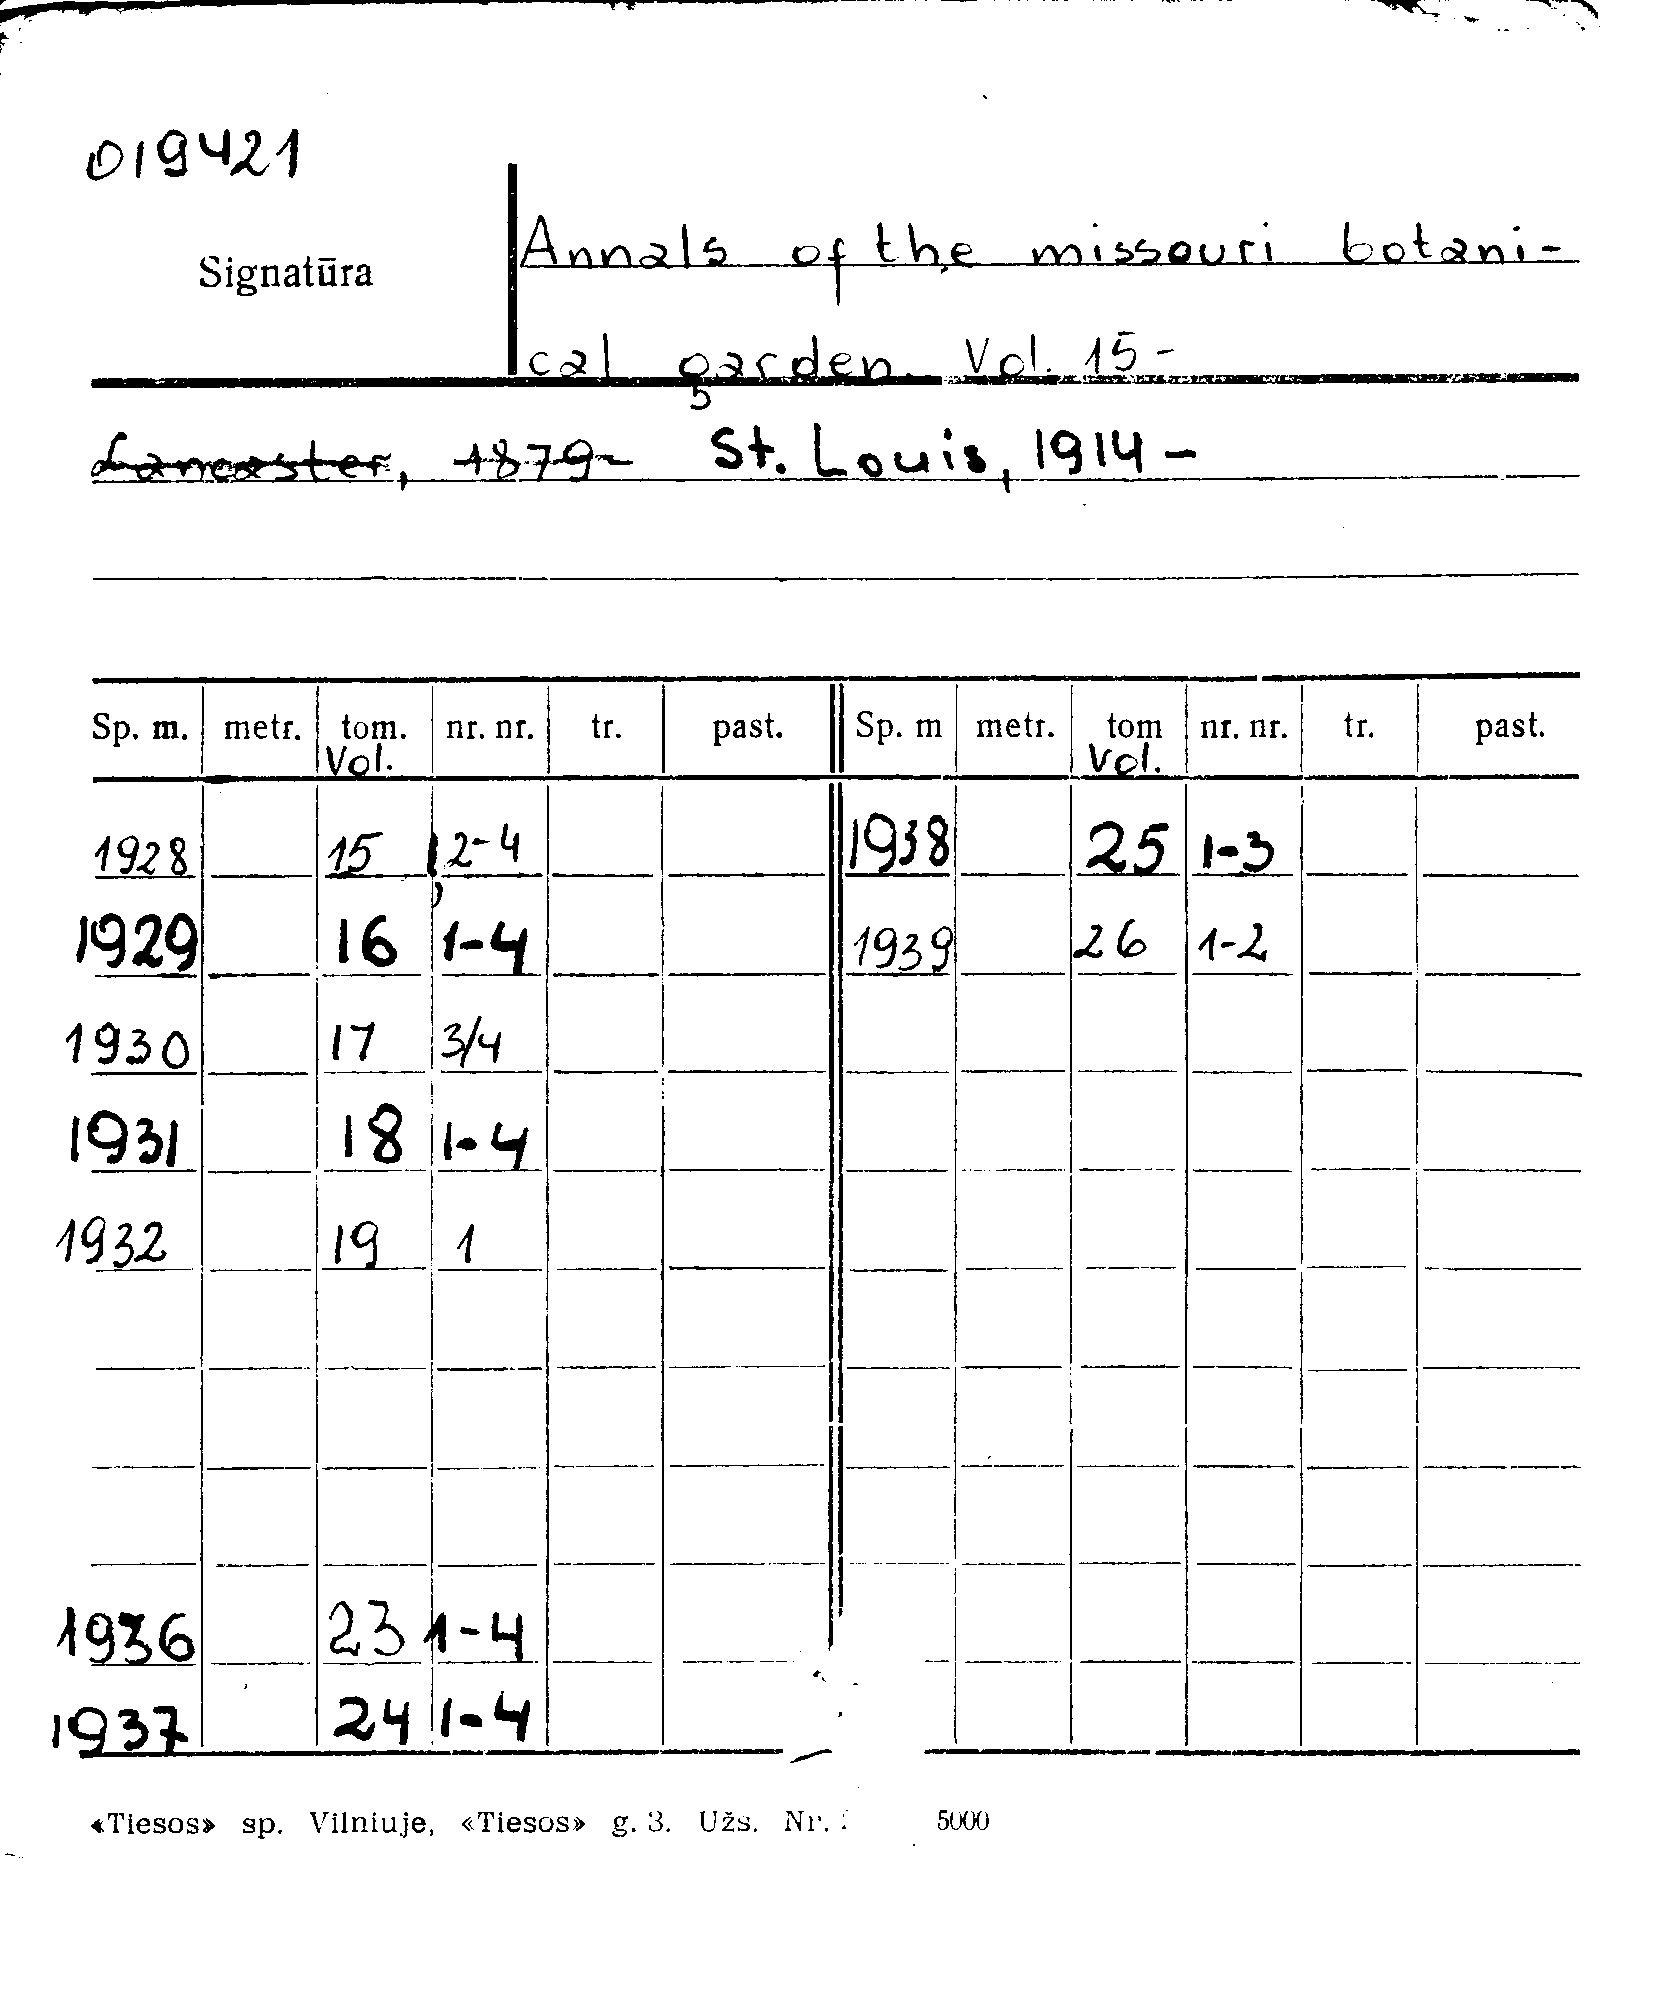 019421
Signatūra
Annals of the missouri botani-
cal garden. Vol. 15-
Lancaster, 1879- St. Louis, 1914-
Sp. m. metr. tom. nr. nr. tr. past. Sp. m metr. tom nr. nr. tr. past.
Vol. Vol.
1928 15 1, 2-4 1938 25 1-3
1929 16 1-4 1939 26 1-2
1930 17 3/4
1931 18 1-4
1932 19 1
1936 23 1-4
1937 24 1-4
«Tiesos» sp. Vilniuje, «Tiesos» g. 3. Užs. Nr. 5000